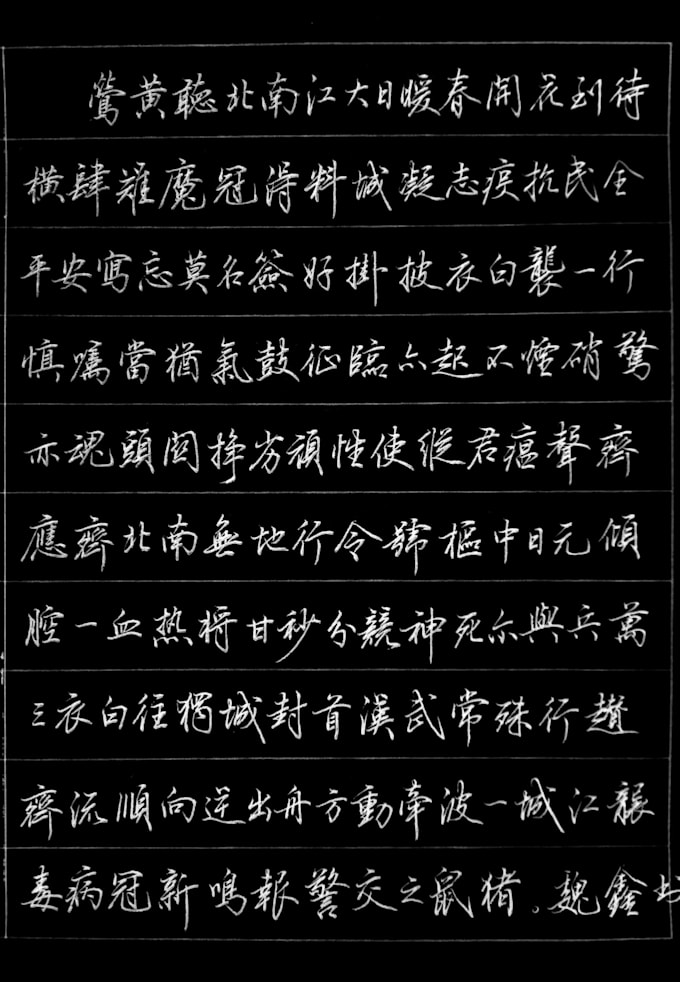 鶯黃聽北南江大日暖春開花到待
橫肆難魔冠得料城凝志疫抗民全
平安寫忘莫名簽好掛披衣白襲一行
慎囑當猶氣鼓征臨亦起不煙硝驚
亦魂頭関掙劣頑性使縱君瘟聲齊
應齊北南無地行令號樞中日元傾
腔一血热将甘秒分競神死尔與兵萬
三衣白往獨城封首漢武常殊行讚
齊流順向逆出舟方動牽波一城江襲
毒病冠新鳴報警交之鼠猪。魏鑫书